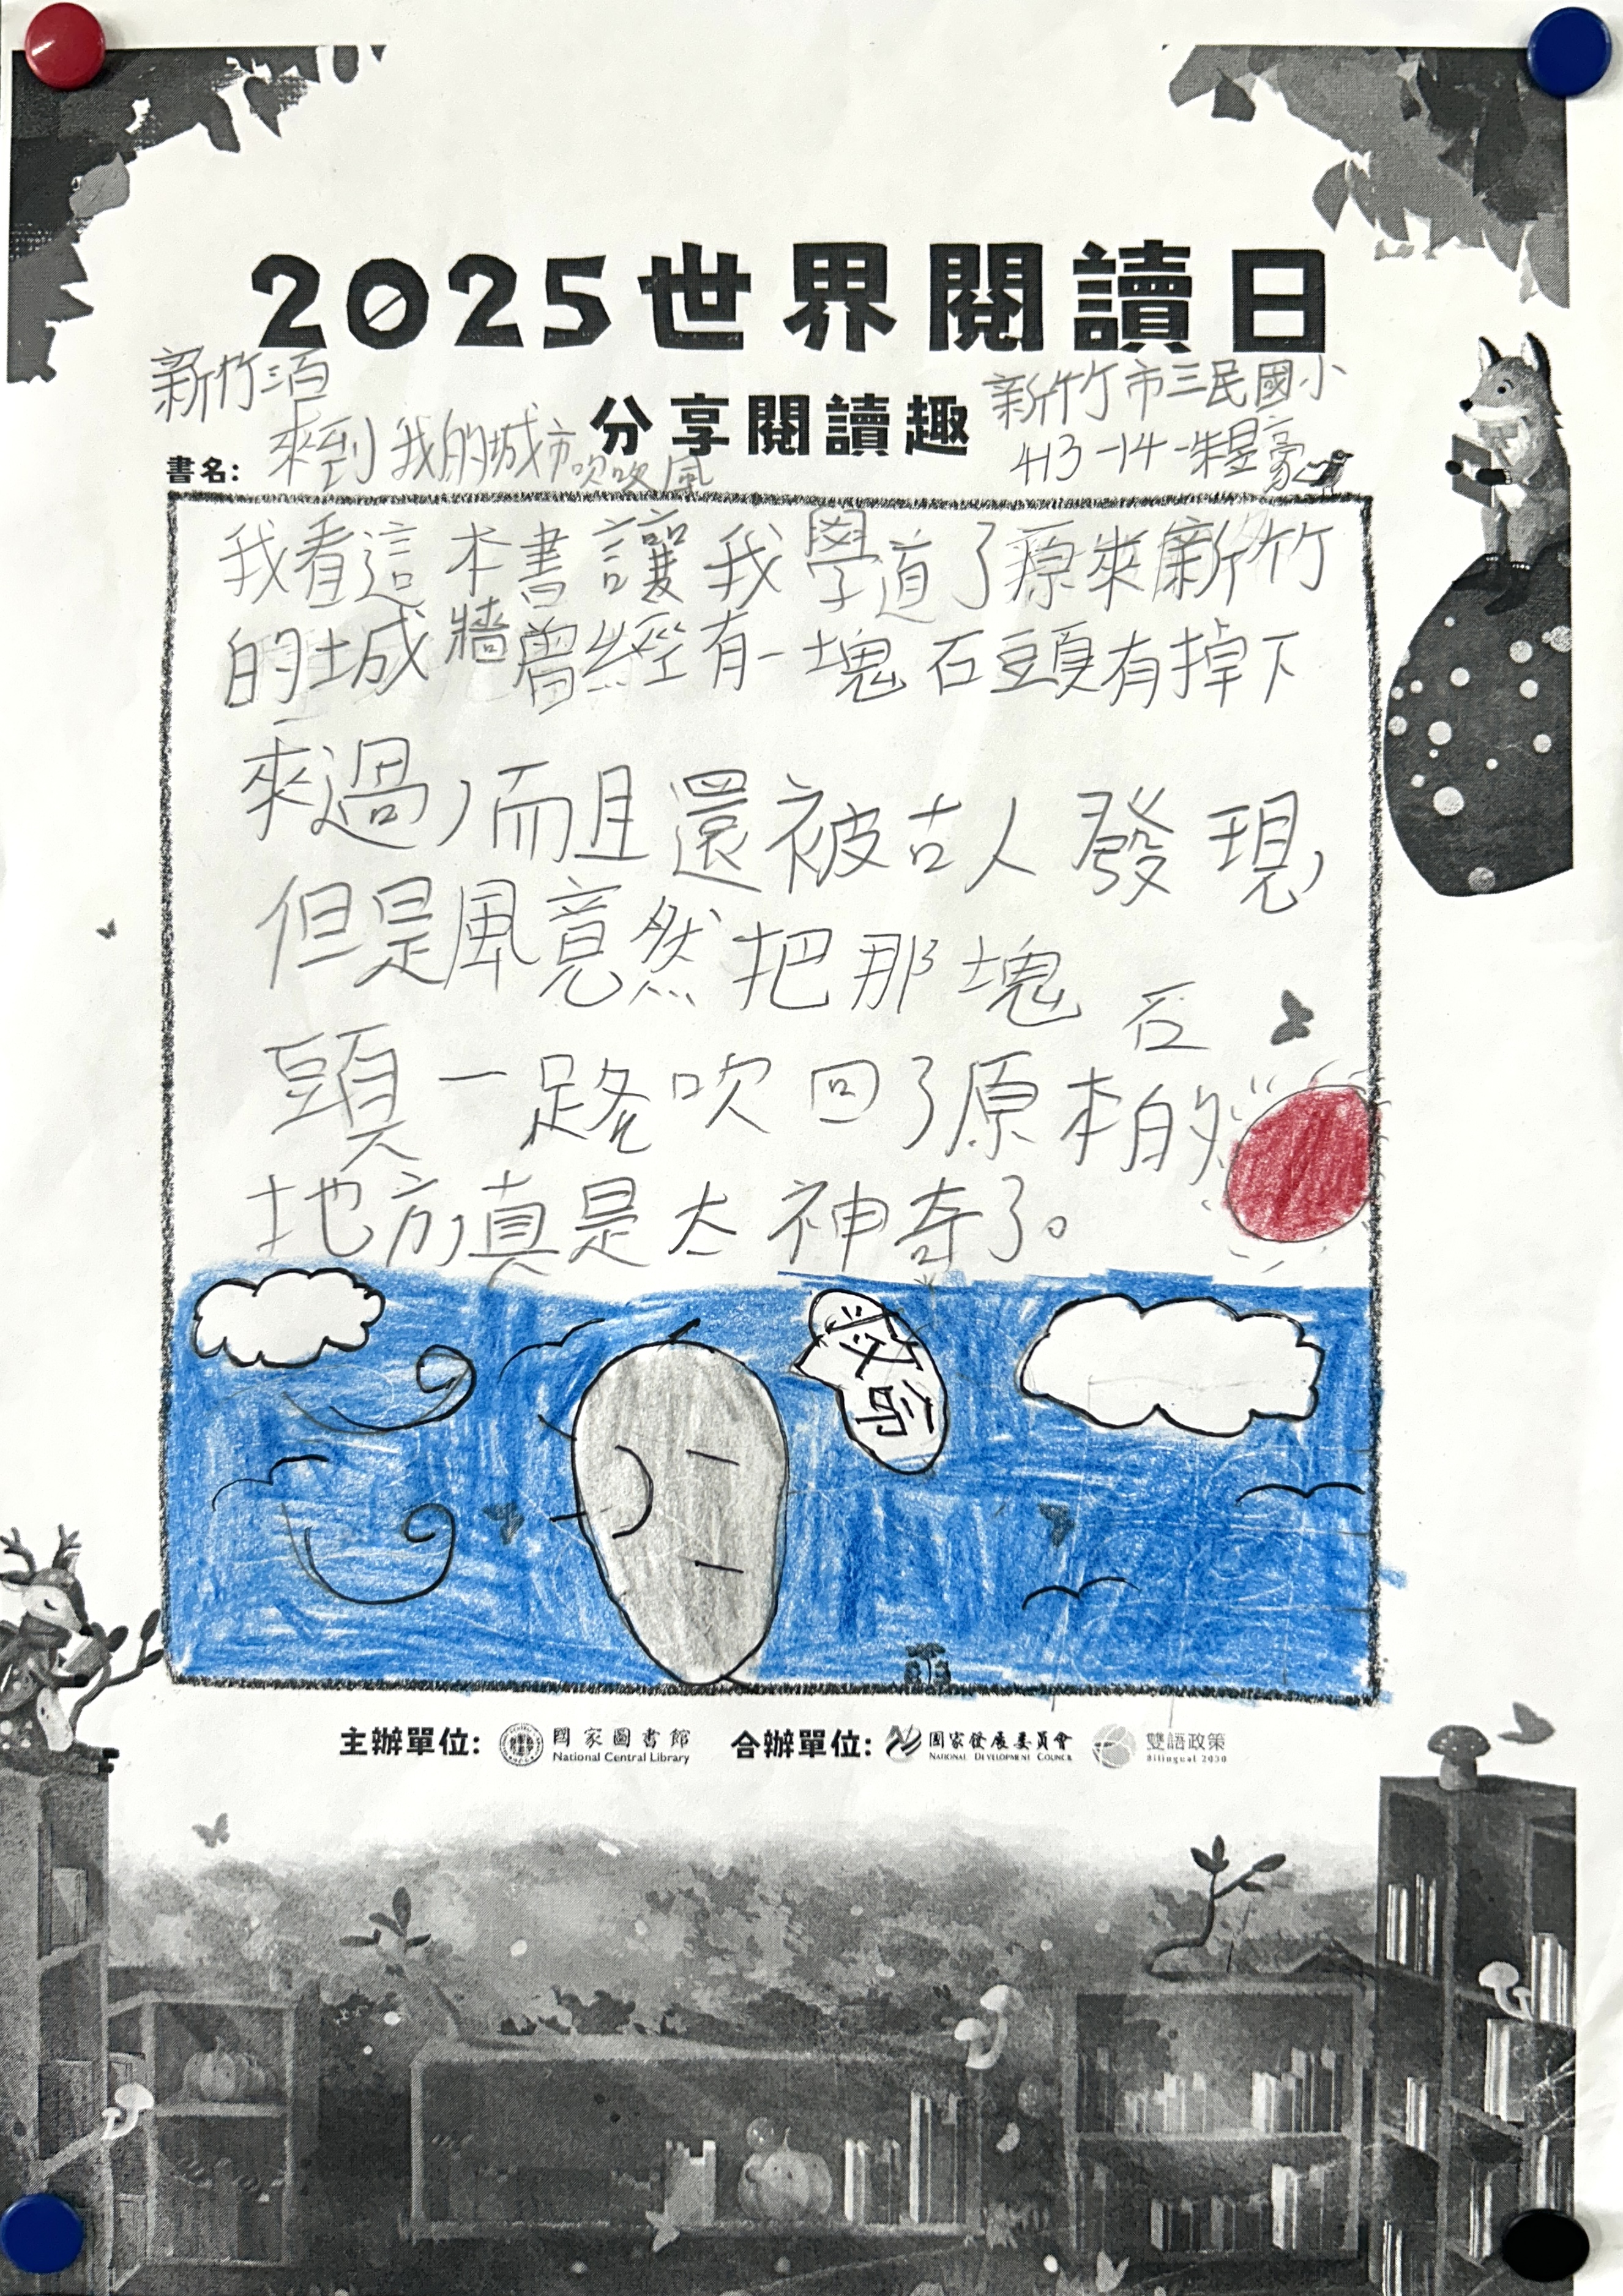 2025世界閱讀日
分享閱讀趣
新竹市三民國小
413-14-朱昱豪
書名: 來到我的城市吹吹風
我看這本書讓我學道了原來新竹
的城牆曾經有一塊石頭有掉下
來過,而且還被古人發現,
但是風竟然把那塊石
頭一路吹回了原本的
地方真是太神奇了。
主辦單位: 國家圖書館 National Central Library 合辦單位: 國家發展委員會 NATIONAL DEVELOPMENT COUNCIL 雙語政策 Bilingual 2030